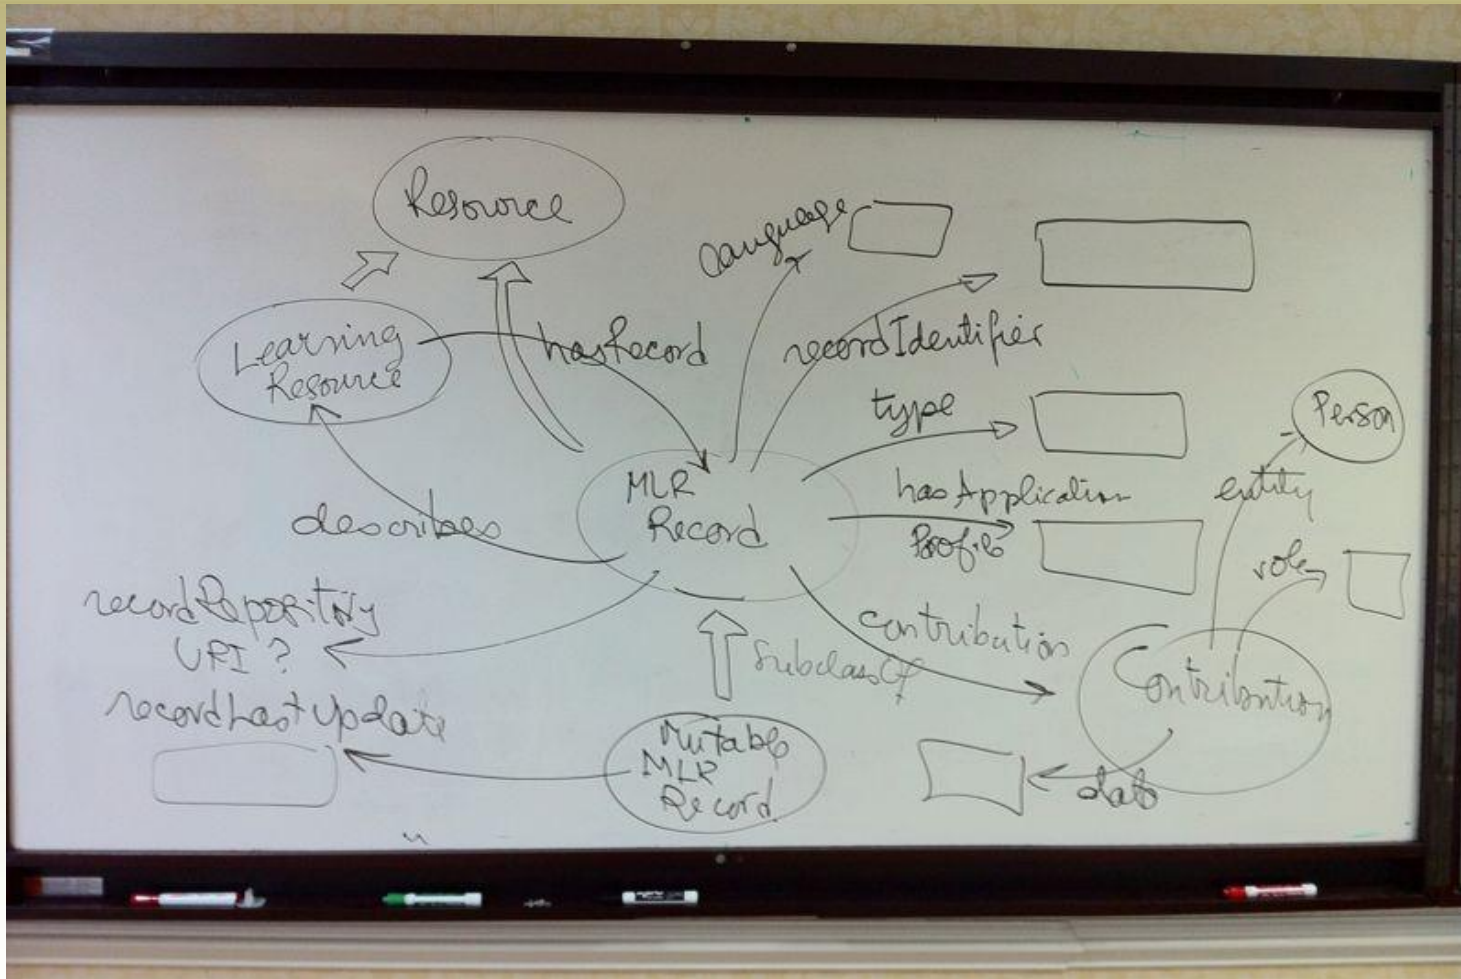 Resource
Language
Learning
Resource
hasRecord
recordIdentifier
type
Person
MLR
Record
hasApplication
Profile
entity
describes
role
recordRepository
URI ?
contribution
SubclassOf
Contribution
recordLastUpdate
Mutable
MLR
Record
date